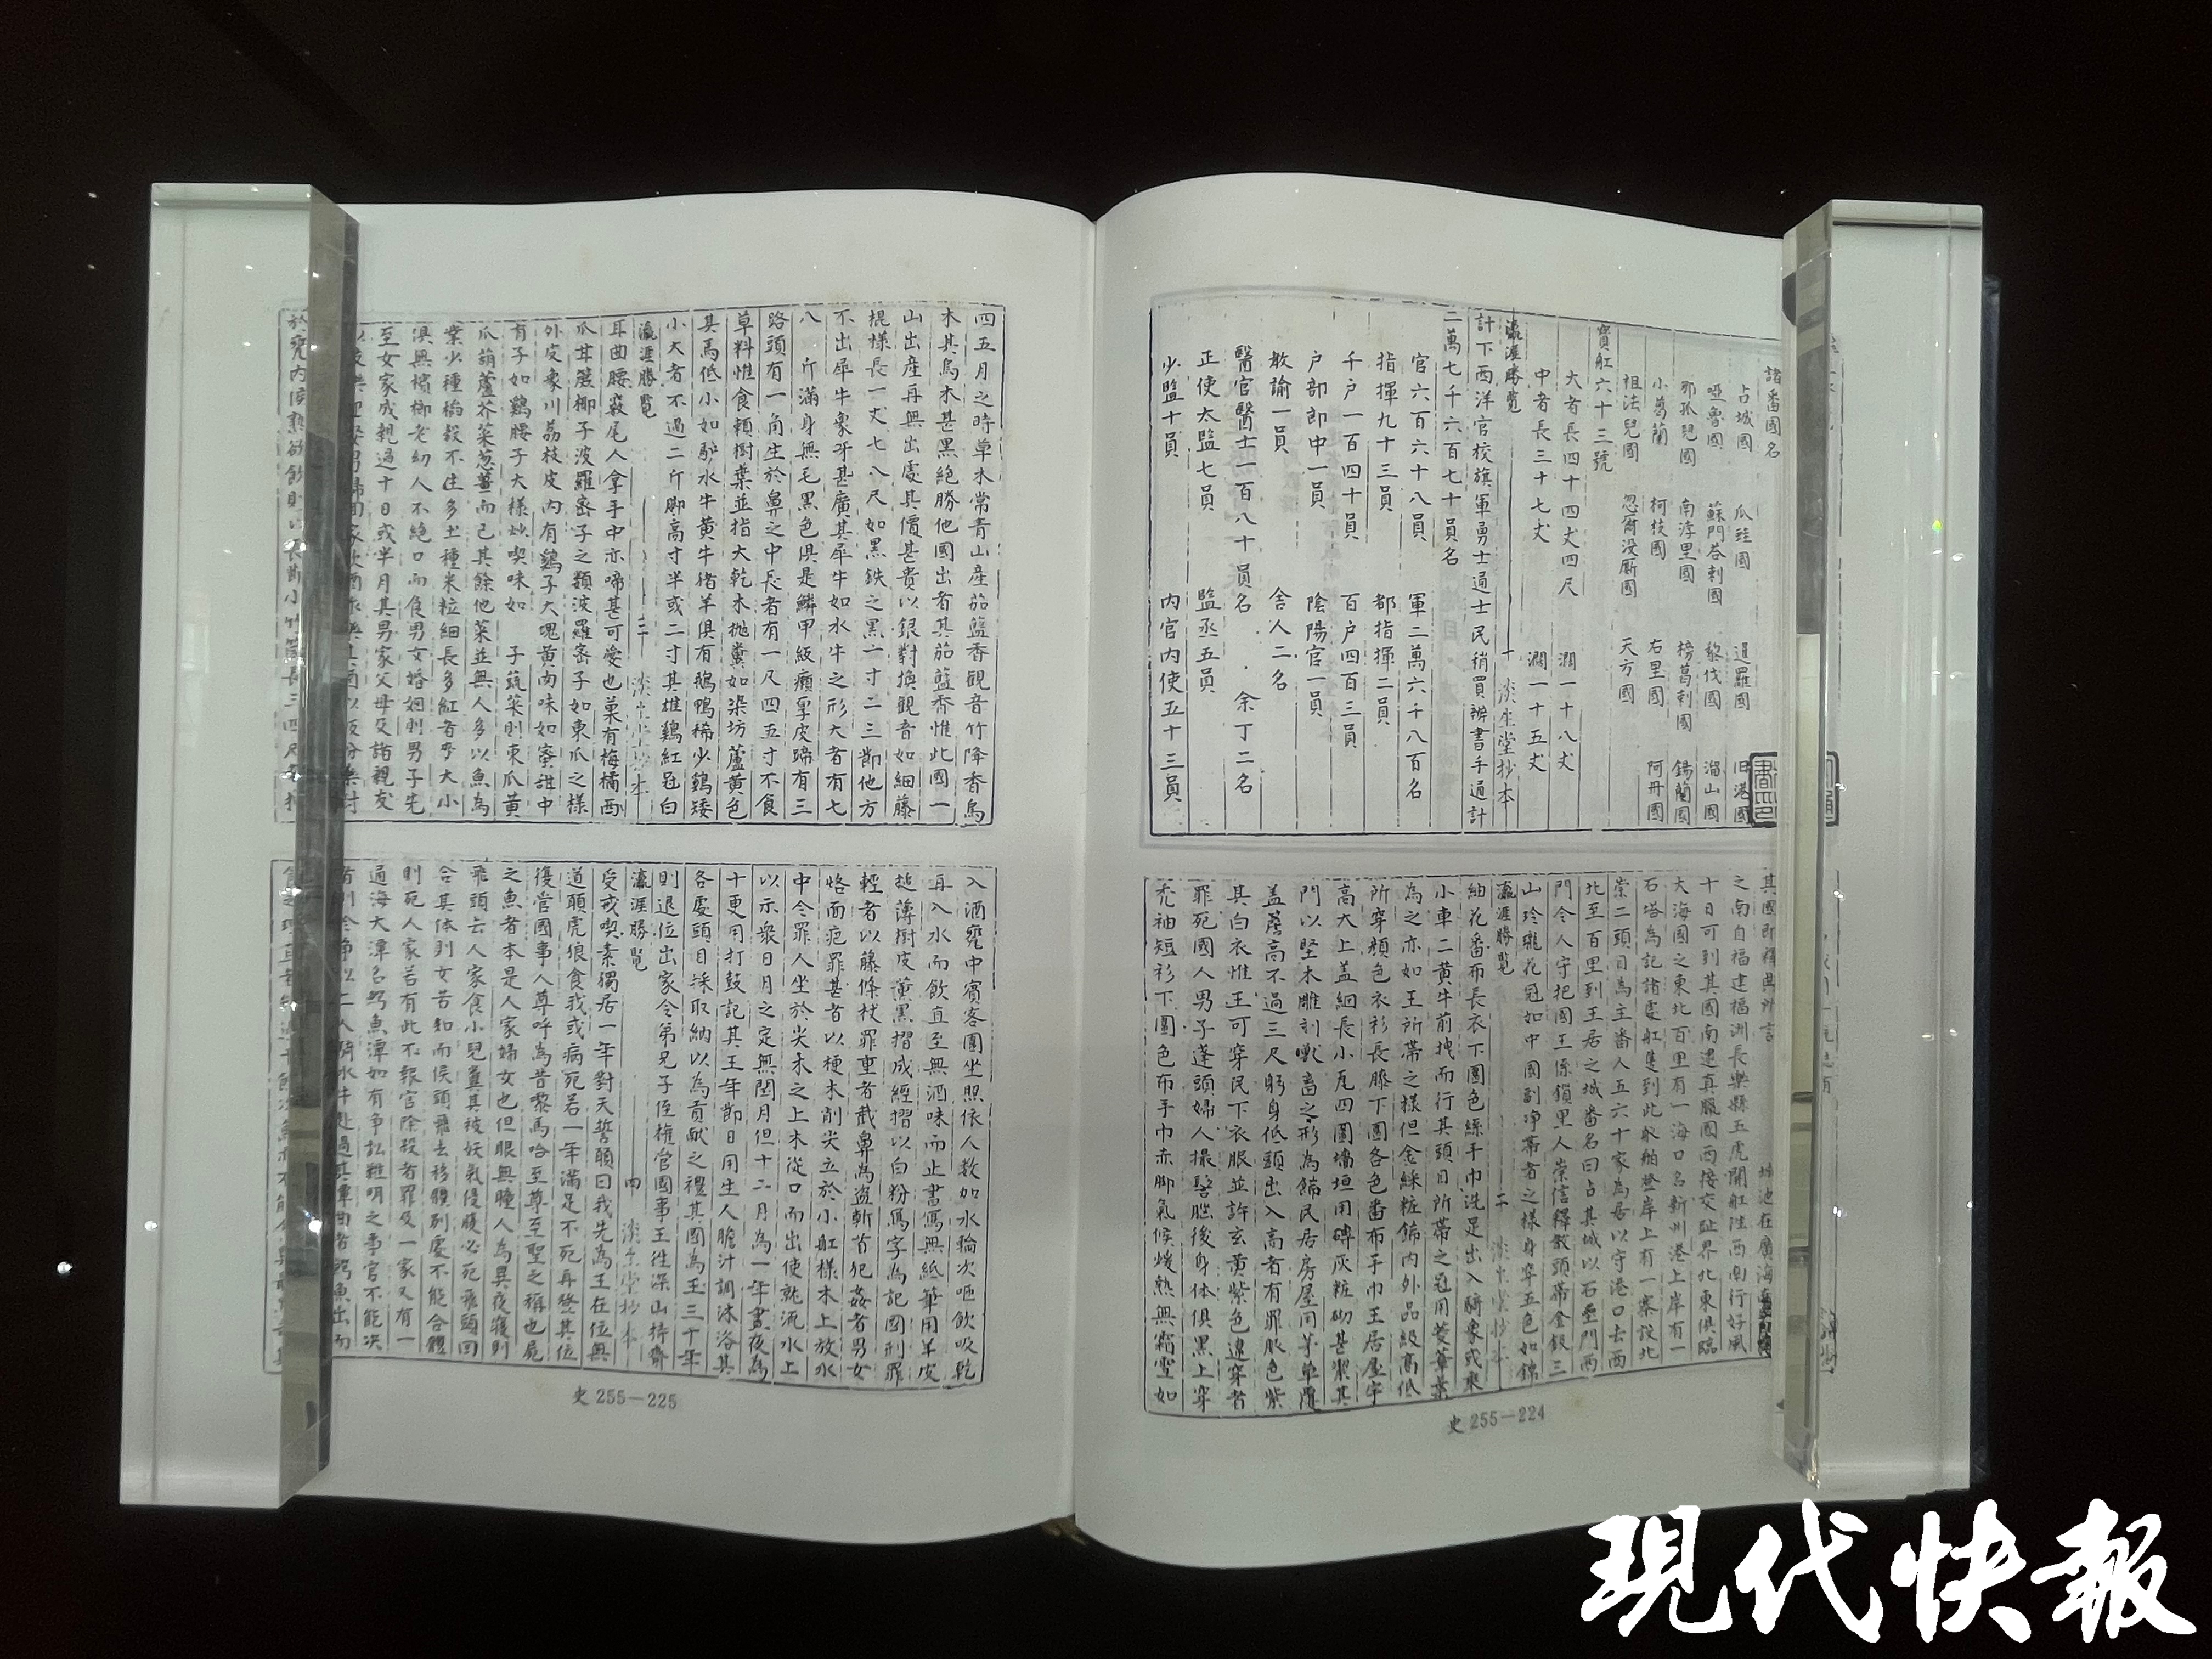 諸番國名
占城國 爪哇國 暹羅國 旧港國
啞魯國 蘇門荅剌國 黎伐國 溜山國
那孤兒國 南浡里國 榜葛剌國 錫蘭國
小葛蘭 柯枝國 古里國 阿丹國
祖法兒國 忽爾没厮國 天方國
寶舡六十三號
大者長四十四丈四尺 濶一十八丈
中者長三十七丈 濶一十五丈
瀛涯勝覧 一 淡生堂抄本
計下西洋官校旗軍勇士通士民稍買辦書手通計
二萬七千六百七十員名
官六百六十八員 軍二萬六千八百名
指揮九十三員 都指揮二員
千户一百四十員 百户四百三員
户部郎中一員 陰陽官一員
教諭一員 舍人二名
醫官醫士一百八十員名 余丁二名
正使太監七員 監丞五員
少監十員 内官内使五十三員
其國即釋典所言 城池在廣海
之南自福建福洲長樂縣五虎開舡徃西南行好風
十日可到其國南連真臘國西接交趾界北東俱臨
大海國之東北百里有一海口名新州港上岸有一
石塔為記諸處舡隻到此收舶登岸上有一寨設北
崇二頭目為主番人五六十家為居以守港口去西
北至百里到王居之城番名曰占其城以石壘門兩
門令人守把國王係鎖里人崇信釋教頭帶金鈒三
山玲瓏花冠如中國副净帶者之樣身穿五色如錦
瀛涯勝覧 二 淡生堂抄本
紬花番布長衣下圍色絲手巾洗足出入騎象或乘
小車二黄牛前拽而行其頭目所帶之冠用茭蔁葉
為之亦如王所帶之樣但金綵粧飾内外品級高低
所穿顔色衣衫長膝下圍各色番布手巾王居屋宇
高大上盖細長小瓦四圍墻垣用磚灰粧砌甚潔其
門以堅木雕刻獸畜之形為飾民居房屋用茅草覆
盖簷高不過三尺躬身低頭出入高者有罪服色紫
其白衣惟王可穿民下衣服並許玄黄紫色違穿者
罪死國人男子蓬頭婦人撮髻腦後身体俱黑上穿
禿袖短衫下圍色布手巾赤脚氣候煖熱無霜雪如
史 255—224
四五月之時草木常青山産茄藍香觀音竹降香烏
木其烏木甚黑絶勝他國出者其茄藍香惟此國一
山出産再無出處其價甚貴以銀對換觀音如細藤
棍樣長一丈七八尺如黑鉄之黑一寸二三節他方
不出犀牛象牙甚廣其犀牛如水牛之形大者有七
八 斤滿身無毛黑色俱是鱗甲紋癩厚皮蹄有三
路頭有一角生於鼻之中長者有一尺四五寸不食
草料惟食頼樹葉並指大乾木抛糞如染坊蘆黄色
其馬低小如馿水牛黄牛猪羊俱有鵝鴨稀少鷄矮
小大者不過二斤脚高寸半或二寸其雄鷄紅冠白
瀛涯勝覧 三 淡生堂抄本
耳曲腰竅尾人拿手中亦啼甚可愛也菓有梅橘西
瓜甘蔗椰子波羅宻子之類波羅宻子如東瓜之樣
外皮象川荔枝皮内有鷄子大塊黄肉味如蜜甜中
有子如鷄腰子大樣炒喫味如 子蔬菜則東瓜黄
瓜葫蘆芥菜葱薑而已其餘他菜並無人多以魚為
業少種稻穀不生多土種米粒細長多紅者大小
俱無檳榔老幼人不絶口而食男女婚姻則男子先
至女家成親過十日或半月其男家父母及諸親友
於甕内候熟欲飲則以長節小竹筒長三四尺
入酒甕中賓客圍坐照依人数加水輪次咂飲吸乾
再入水而飲直至無酒味而止書寫無紙筆用羊皮
搥薄樹皮薫黑摺成經摺以白粉寫字為記國刑罪
輕者以藤條杖罪重者截鼻為盗斬首犯姦者男女
烙面疤罪甚者以梗木削尖立於小舡樣木上放水
中令罪人坐於尖木之上木從口而出使就流水上
以示衆日月之定無閏月但十二月為一年晝夜為
十更用打鼓記其王年節日用生人膽汁調沐浴其
各處頭目採取納以為貢献之禮其國為王三十年
則退位出家令弟兄子侄權官國事王徃深山持齋
瀛涯勝覧 四 淡生堂抄本
受戒喫素獨居一年對天誓願曰我先為王在位無
道願虎狼食我或病死若一年滿足不死再登其位
復營國事人尊呼為昔黎馬哈至尊至聖之稱也屍
之魚者本是人家婦女也但眼無瞳人為異夜寝則
飛頭去人家食小兒糞其被妖氣侵腹必死飛頭回
合其体則女若知而候頭飛去移體别處不能合體
則死人家若有此不報官除殺者罪及一家又有一
通海大潭名鰐魚潭如有争訟難明之事官不能決
史 255—225
現代快報